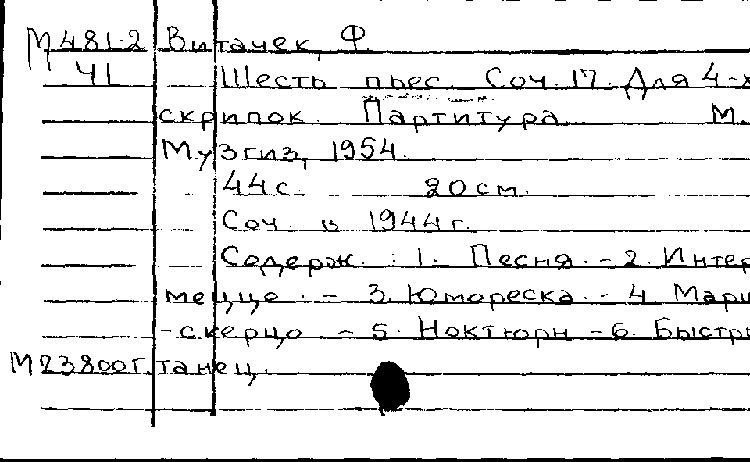 М481-2 Витачек, Ф.
41 Шесть пьес. Соч. 17. Для 4-х
скрипок. Партитура. М.
Музгиз, 1954.
44с. 20см.
Соч. в 1944г.
Содерж.: 1. Песня. - 2. Интер
меццо. - 3. Юмореска. - 4. Марш
-скерцо - 5. Ноктюрн - 6. Быстры
М23800г. танец.